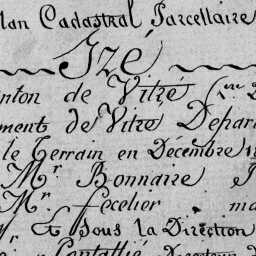 lan Cadastral Parcellaire
Izé
nton de Vitré
ment de Vitre Depar
le Terrain en Décembre 18
Mr Bonnaire
Mr fecelier ma
r. Et Sous la Direction